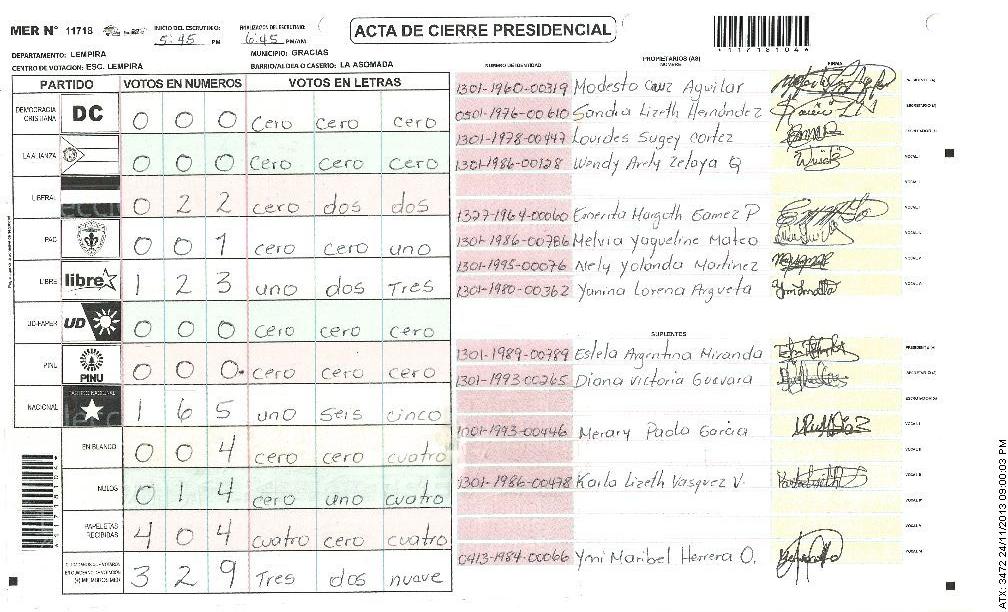 MER Nº 11718 INICIO DEL ESCRUTINIO: 5:45 PM FINALIZACION DEL ESCRUTINIO: 6:45 PM/AM ACTA DE CIERRE PRESIDENCIAL
DEPARTAMENTO: LEMPIRA MUNICIPIO: GRACIAS
CENTRO DE VOTACION: ESC. LEMPIRA BARRIO/ALDEA O CASERIO: LA ASOMADA
PARTIDO VOTOS EN NUMEROS VOTOS EN LETRAS
DEMOCRACIA CRISTIANA DC 0 0 0 cero cero cero
LA ALIANZA 0 0 0 cero cero cero
LIBERAL 0 2 2 cero dos dos
PAC 0 0 1 cero cero uno
LIBRE libre 1 2 3 uno dos Tres
UD-FAPER UD 0 0 0 cero cero cero
PINU PINU 0 0 0 cero cero cero
NACIONAL 1 6 5 uno seis cinco
EN BLANCO 0 0 4 cero cero cuatro
NULOS 0 1 4 cero uno cuatro
PAPELETAS RECIBIDAS 4 0 4 cuatro cero cuatro
3 2 9 Tres dos nueve
PROPIETARIOS (AS)
NUMERO DE IDENTIDAD NOMBRE FIRMA
1301-1960-00319 Modesto Cruz Aguilar
0501-1976-00610 Sandra Lizeth Hernández
1301-1978-00447 Lourdes Sugey Cortez
1301-1986-00128 Wendy Arely Zelaya Q
1327-1964-00060 Emerita Margoth Gamez P
1301-1986-00786 Melvia Yaqueline Mateo
1301-1995-00076 Nely Yolanda Martinez
1301-1980-00362 Yanina Lorena Argueta
SUPLENTES
1301-1989-00789 Estela Argentina Miranda
1301-1993-00265 Diana Victoria Guevara
1301-1993-00446 Merary Paola Garcia
1301-1986-00478 Karla Lizeth Vasquez V.
0413-1984-00066 Yeni Maribel Herrera O.
ATX: 3472 24/11/2013 09:00:03 PM